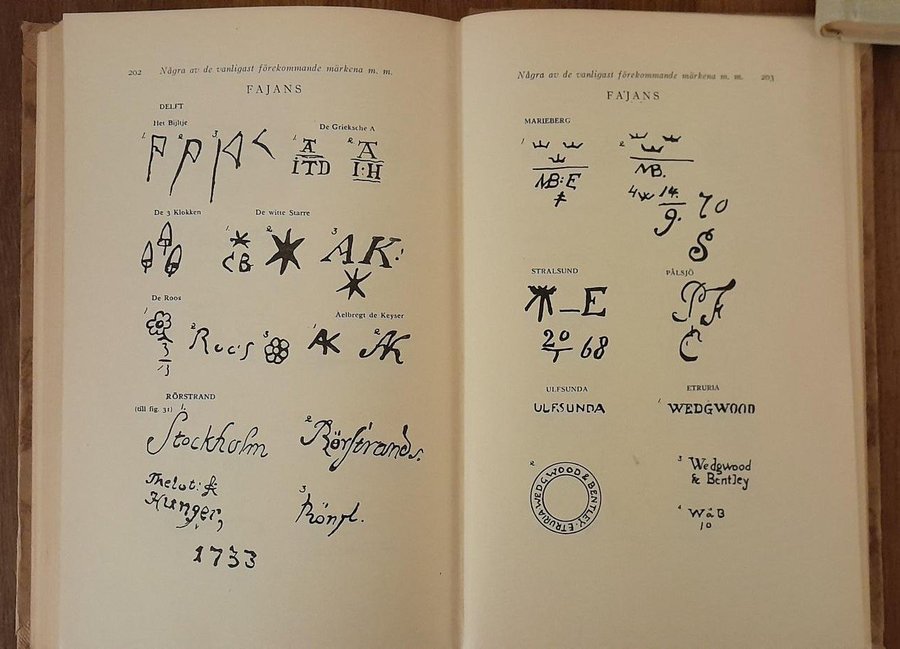 202 Några av de vanligast förekommande märkena m. m.
FAJANS
DELFT
Het Bijltje
1. 2 3
De Grieksche A
1. A
ITD
2 A
I:H
De 3 Klokken
De witte Starre
1.
CB
2
3 AK:
De Roos
1
3
13
2 Roos
3
Aelbregt de Keyser
1 AK
2 AK
RÖRSTRAND
(till fig. 31) 1.
Stockholm
Thelot: &
Hunger,
1733
2 Rörstrands.
3
Rönst.
Några av de vanligast förekommande märkena m. m. 203
FAJANS
MARIEBERG
1
MB:E
2
MB.
14.
9. 70
S
STRALSUND
E
20
1 68
PÅLSJÖ
PF
C
ULFSUNDA
ULFSUNDA
ETRURIA
1 WEDGWOOD
2 WEDGWOOD & BENTLEY: ETRURIA:
3 Wedgwood
& Bentley
4 W&B
10